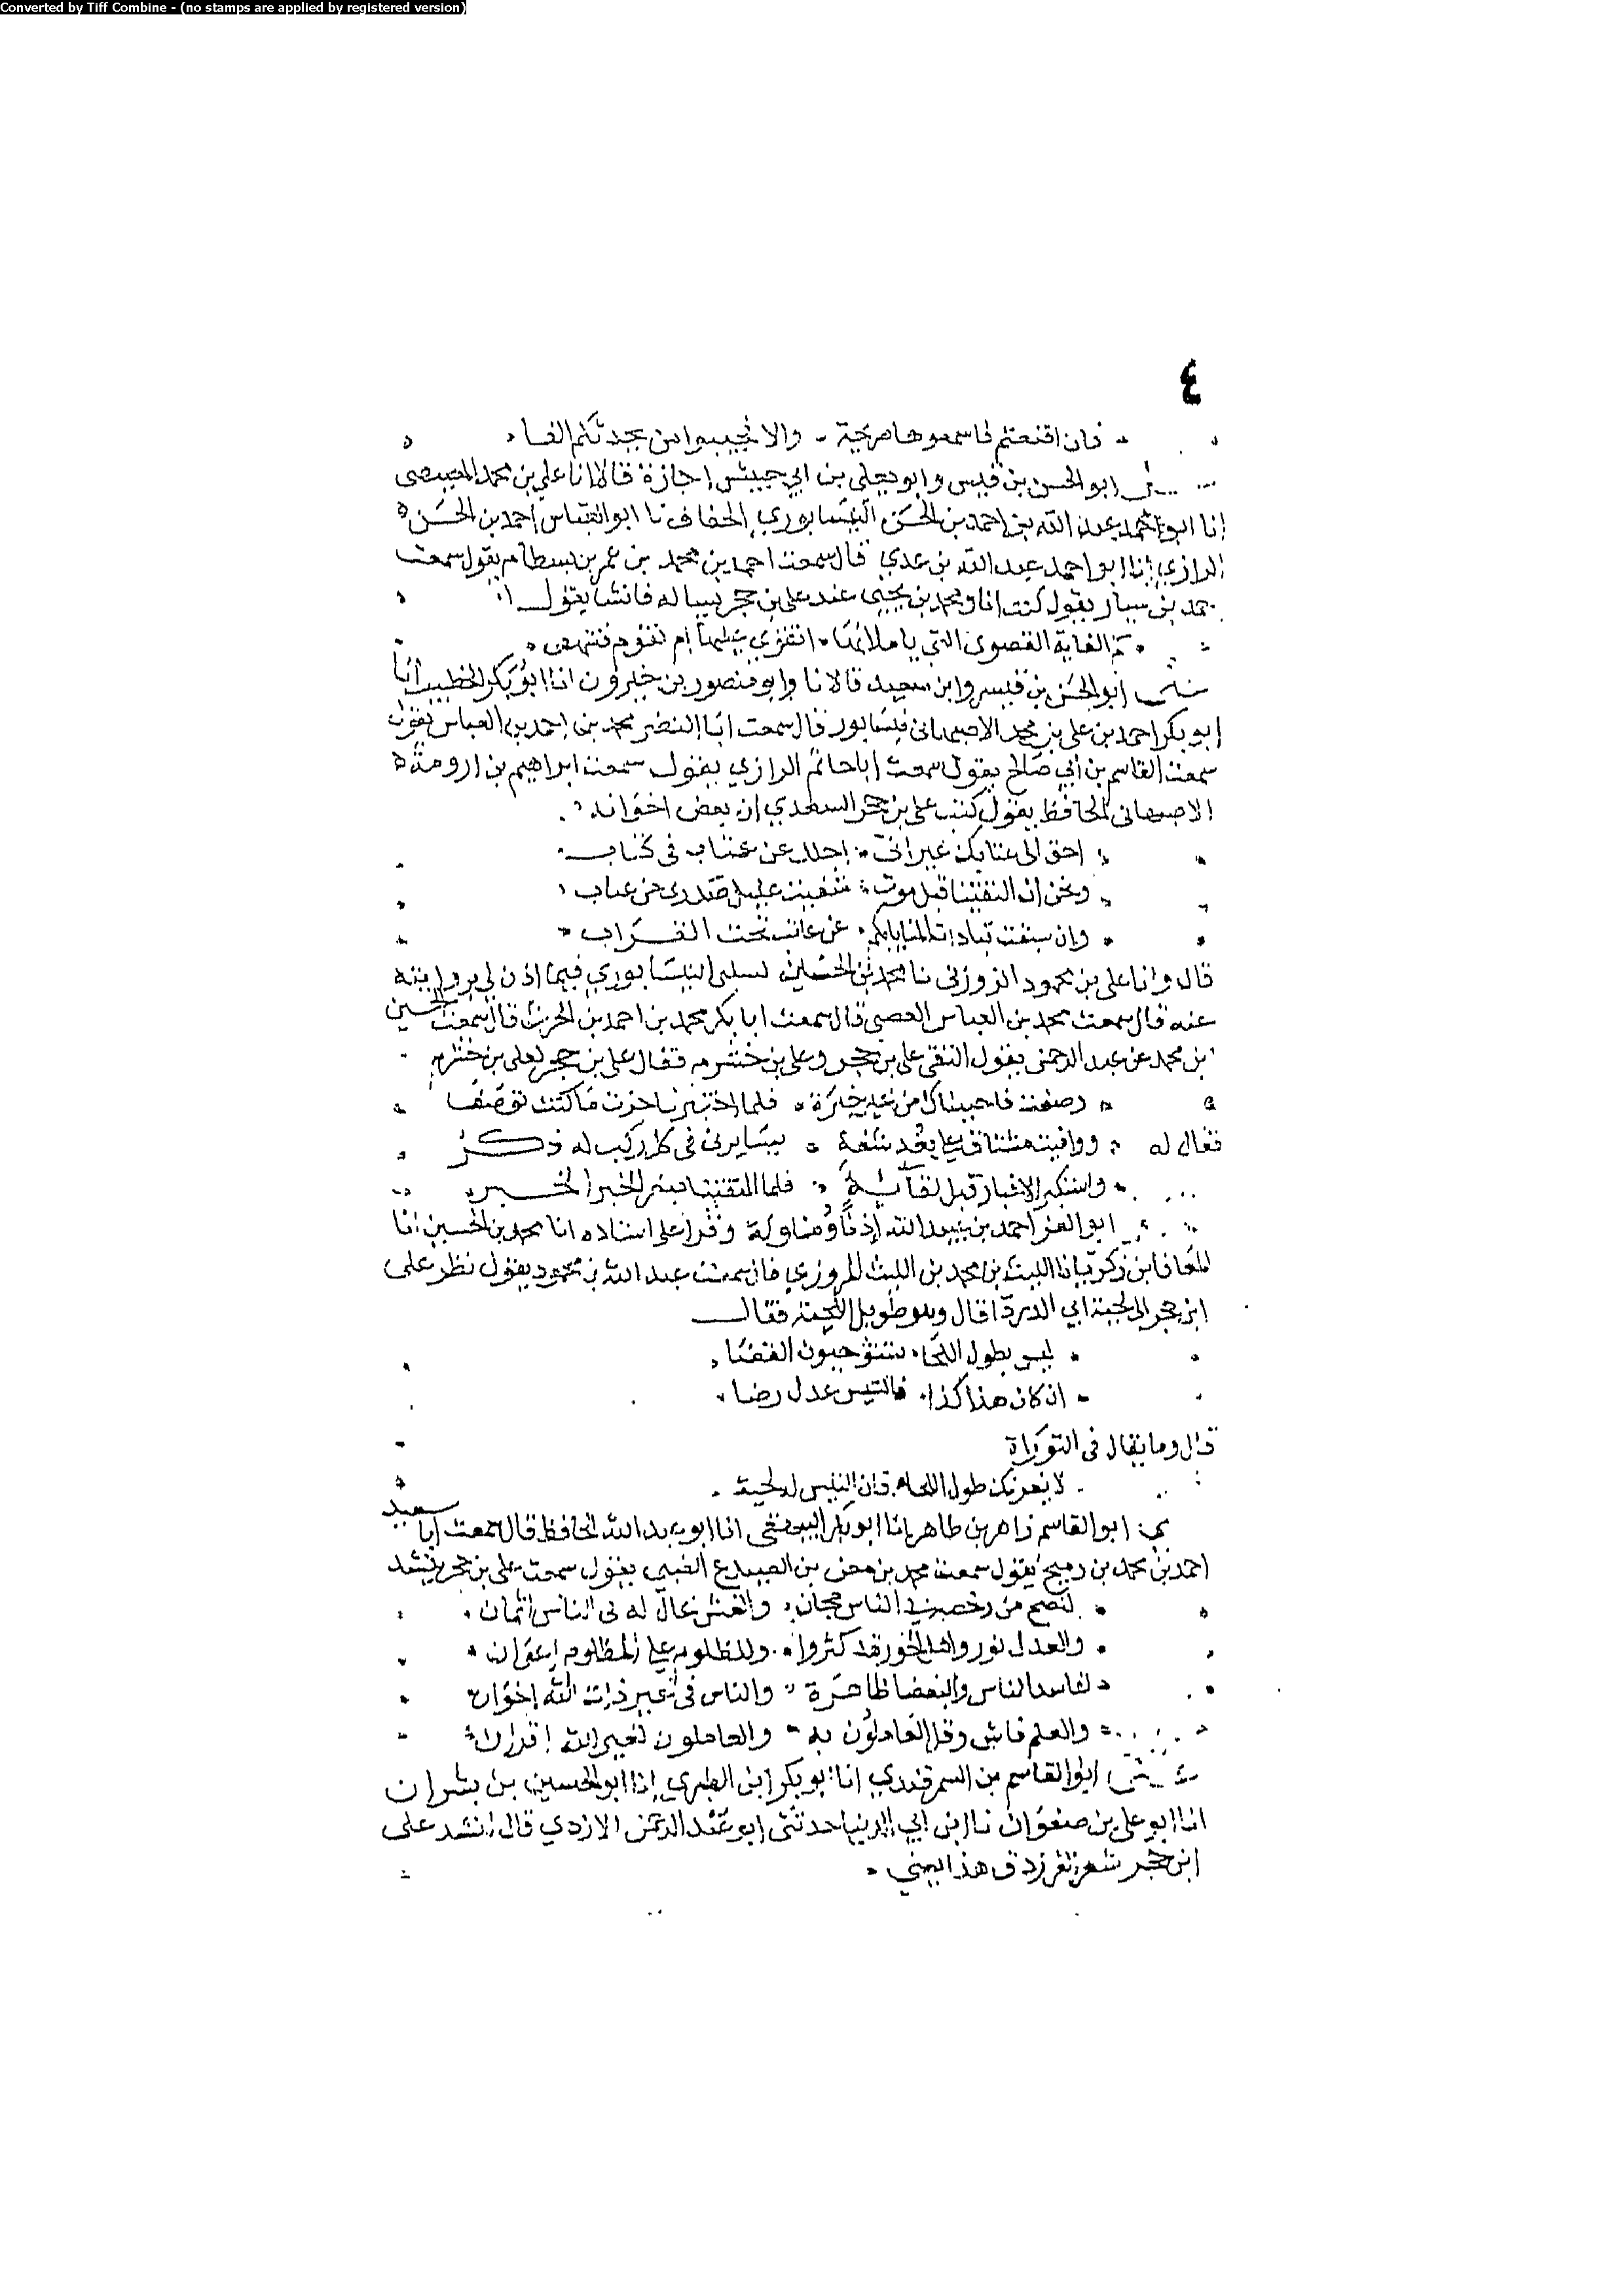 Converted by Tiff Combine - (no stamps are applied by registered version)
٤
فان اقنعتم فاسمعوها مريحة والا فجيبوا من يحدثكم الفا
ابو الحسن بن قبيس وابو يعلى بن ابي حبيش اجازة قالا انا علي بن محمد المصيصي
انا ابو احمد عبد الله بن احمد بن الحسن النيسابوري الخفاف نا ابو العباس احمد بن الحسن
الرازي انا ابو احمد عبد الله بن عدي قال سمعت احمد بن محمد بن عمر بن بسطام يقول سمعت
احمد بن سيار يقول كنت انا ومحمد بن يحيى عند علي بن حجر فانشا يقول
الغاية القصوى التي ام نقوم
ابو الحسن بن قبيس وابن سعيد قالا نا وابو منصور بن خيرون انا ابو بكر الخطيب انا
ابو بكر احمد بن علي بن محمد الاصبهاني قال سمعت ابا النضر محمد بن احمد بن العباس يقول
سمعت القاسم بن ابي صالح يقول سمعت ابا حاتم الرازي يقول سمعت ابراهيم بن ارومة
الاصبهاني الحافظ يقول كتب علي بن حجر السعدي الى بعض اخوانه
احن الى عتابك غير اني اجلك عن عتاب في كتاب
ونحن ان التقينا قبل موت شفيت عليل صدري من عتاب
وان سبقت بنا ايدي المنايا فكم من عاتب تحت التراب
قال وانا علي بن محمود الزوزني نا محمد بن الحسين السلمي النيسابوري فيما اذن لي بروايته
عنه قال سمعت محمد بن العباس العصمي قال سمعت ابا بكر محمد بن احمد بن الحرث قال سمعت الحسين
ابن محمد بن عبد الرحمن يقول التقى علي بن حجر وعلي بن خشرم فقال علي بن حجر لعلي بن خشرم
وصفت فاحببناك من غير خبرة فلما اختبرنا حزت ما كنت توصف
فقال له ووافيت مشتاقا على بعد شقة يسايرني في كل ركب له ذكر
واستكبر الاخبار قبل لقائه فلما التقينا صغر الخبر الخبر
ابو العز احمد بن عبيد الله اذنا ومناولة وقرا على اسناده انا محمد بن الحسين انا
المعافا بن زكريا نا الليث بن محمد بن الليث المروزي قال سمعت عبد الله بن محمود يقول نظر علي
ابن حجر الى لحية ابي الدرداء قال وهو طويل اللحية فقال
ليس بطول اللحاء تستوجبون القضا
ان كان هذا كذا فالتيس عدل رضا
قال وما يقال في التوراة
لا يغرنك طول اللحا فان التيس له لحية
ابو القاسم زاهر بن طاهر انا ابو بكر البيهقي انا ابو عبد الله الحافظ قال سمعت ابا سعيد
احمد بن محمد بن رميح يقول سمعت محمد بن بن الضبي يقول سمعت علي بن حجر ينشد
النصح من رخصه في الناس مجان والغش غال له في الناس اثمان
والعدل نور واهل الجور قد كثروا وللظلوم على المظلوم اعوان
تفاسد الناس والبغضا ظاهرة والناس في غير ذات الله اخوان
والعلم فاش وقل العاملون به والعاملون لغير الله اقران
ابو القاسم بن السمرقندي انا ابو بكر ابن الطبري انا ابو الحسين بن بشران
انا ابو علي بن صفوان نا ابن ابي الدنيا حدثني ابو عبد الرحمن الازدي قال انشد علي
ابن حجر شعر الفرزدق هذا يعني